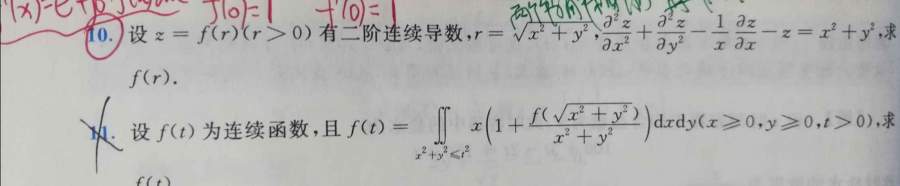 f(0)=1 f'(0)=1
10. 设 z = f(r)(r > 0) 有二阶连续导数, r = √(x² + y²), ∂²z/∂x² + ∂²z/∂y² - 1/x ∂z/∂x - z = x² + y², 求
f(r).
11. 设 f(t) 为连续函数, 且 f(t) = ∬_{x²+y²≤t²} x(1 + f(√(x² + y²))/(x² + y²))dxdy(x ≥ 0, y ≥ 0, t > 0), 求
f(t)